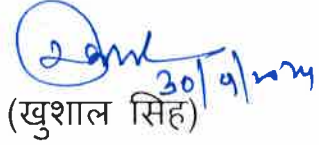 30/9/2024
(खुशाल सिंह)